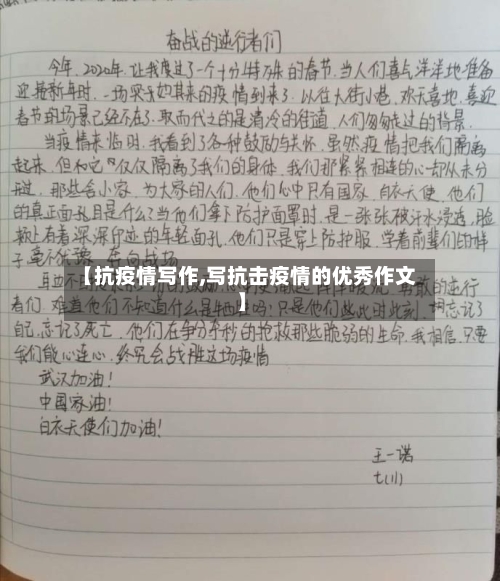 奋战的逆行者们
今年,2020年,让我度过了一个十分特殊的春节,当人们喜气洋洋地准备
迎接新年时,一场突如其来的疫情到来了,以往大街小巷,欢天喜地,喜迎
春节的场景已经不在了,取而代之的是清冷的街道,人们匆匆走过的背景.
当疫情来临时,我看到了各种鼓励与关怀,虽然疫情把我们隔离
起来,但和它"仅仅隔离了我们的身体,我们那紧紧相连的心却从未分
开过,那些舍小家,为大家的人们,他们心中只有国家,白衣天使,他们
的真正面孔且是什么?当他们拿下防护面罩时,是一张张被汗水浸透,脸
颊上有着深深印迹的年轻面孔,他们只是穿上防护服,学着前辈们的样
子毫不犹豫
【抗疫情写作,写抗击疫情的优秀作文】
的逆行
者们,难道他们不知道什么是牺牲吗?只是他们此时此刻,忘记了
自己,忘记了死亡,他们在争分夺秒的抢救那些脆弱的生命,我相信,只要
我们能心连心,终究会战胜这场疫情
武汉加油!
中国加油!
白衣天使们加油!
王一诺
七(11)